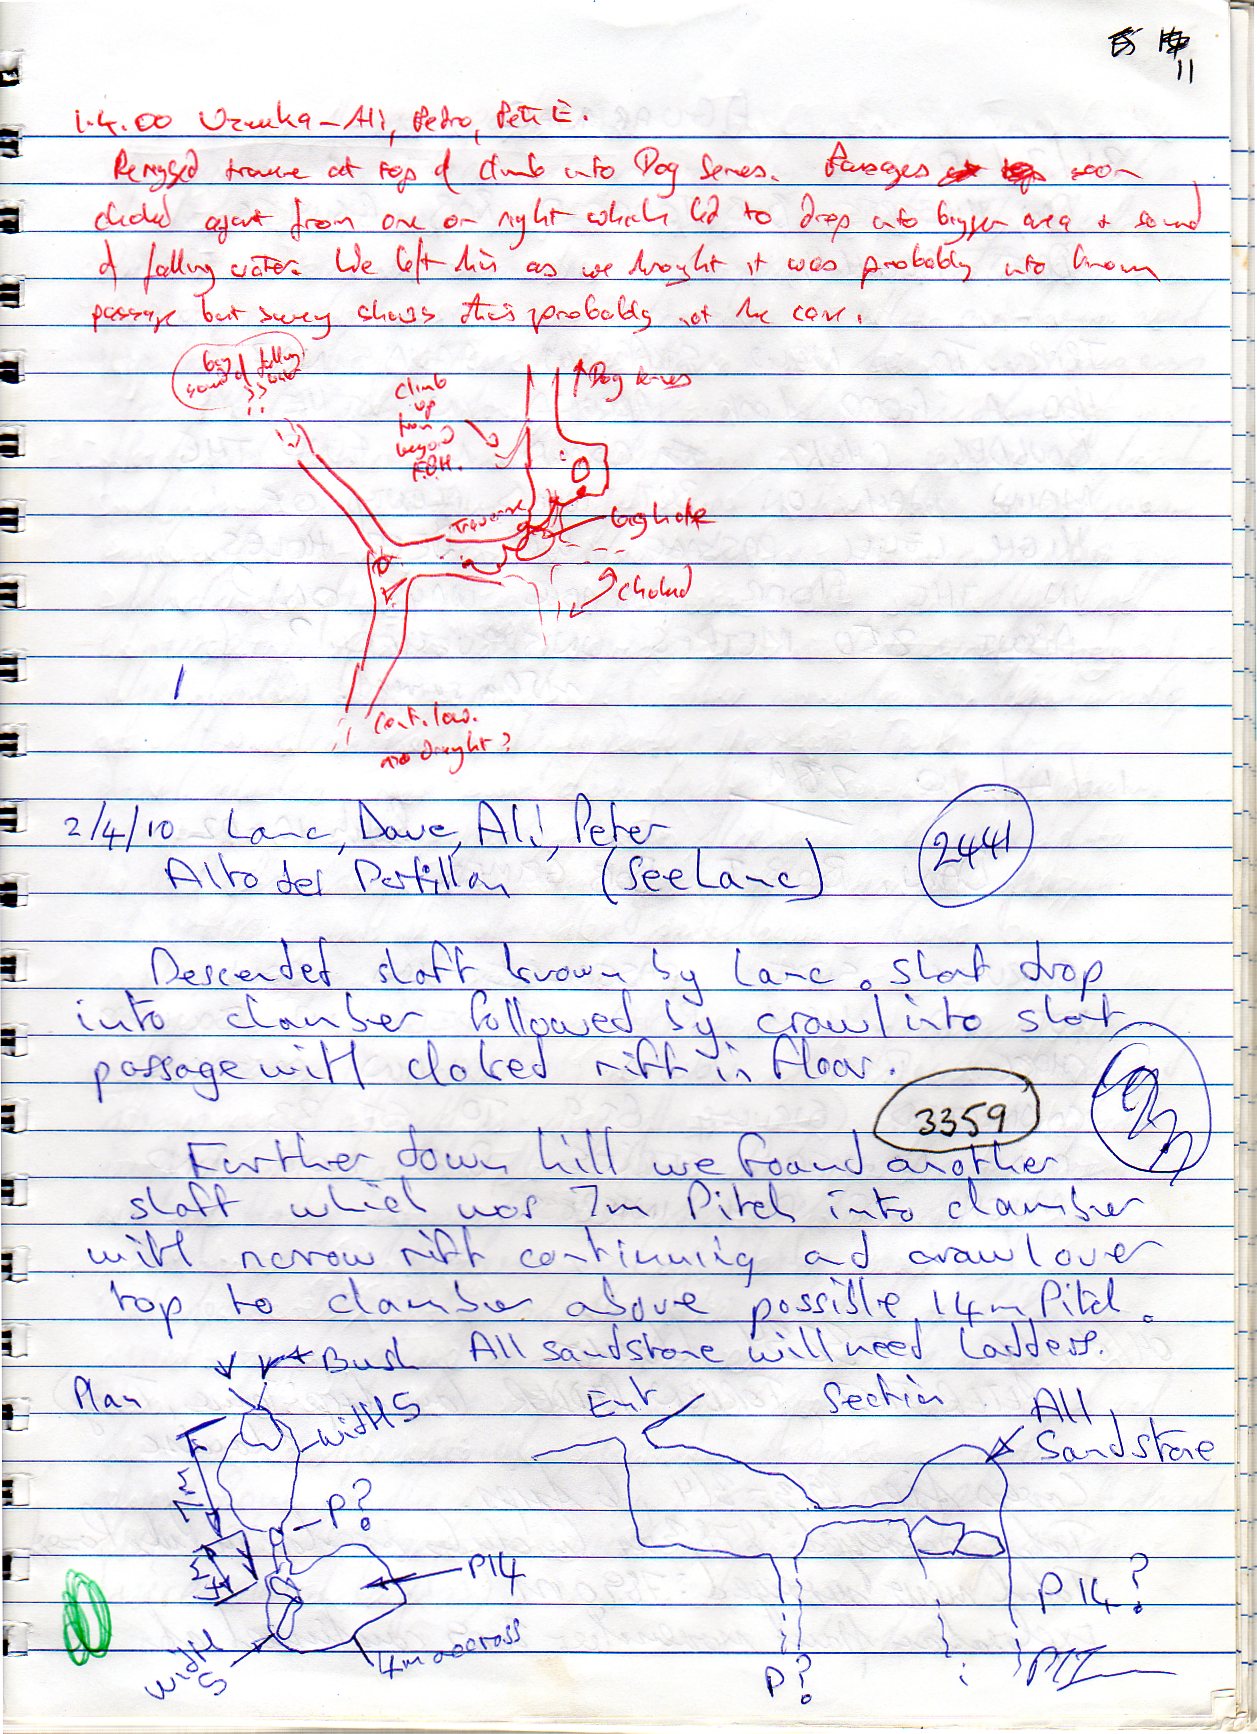 11
1.4.00 Uzueka - Ali, Pedro, Pete E.
Rerigged traverse at top of climb into Dog Series. Passages soon
choked apart from one on right which led to drop into bigger area + sound
of falling water. We left this as we thought it was probably into known
passage but survey shows this probably not the case.
big sound of falling water
??
climb
up
from
beyond
F.O.H.
Dog Series
traverse
big hole
choked
Cont. low.
no draught?
2/4/10 Lanc, Dave, Ali, Peter
2441
Alto del Portillon (See Lanc)
Descended shaft known by Lanc. Short drop
into chamber followed by crawl into short
passage with choked rift in floor.
3359
Further down hill we found another
shaft which was 7m Pitch into chamber
with narrow rift continuing and crawl over
top to chamber above possible 14m Pitch.
All sandstone will need Ladders.
Bush
Plan
width 5
7m
P?
P14
4m accross
width
5
Ent
Section
All
Sandstone
P?
P14?